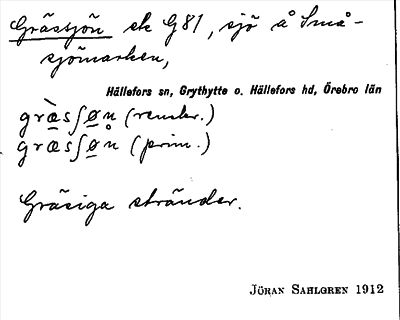 Grässjön sk G81, sjö å Små-
sjömarken,
Hällefors sn, Grythytte o. Hällefors hd, Örebro län
græ̀sʃøn (renskr.)
græsʃøn (prim.)
Gräsiga stränder.
JÖRAN SAHLGREN 1912